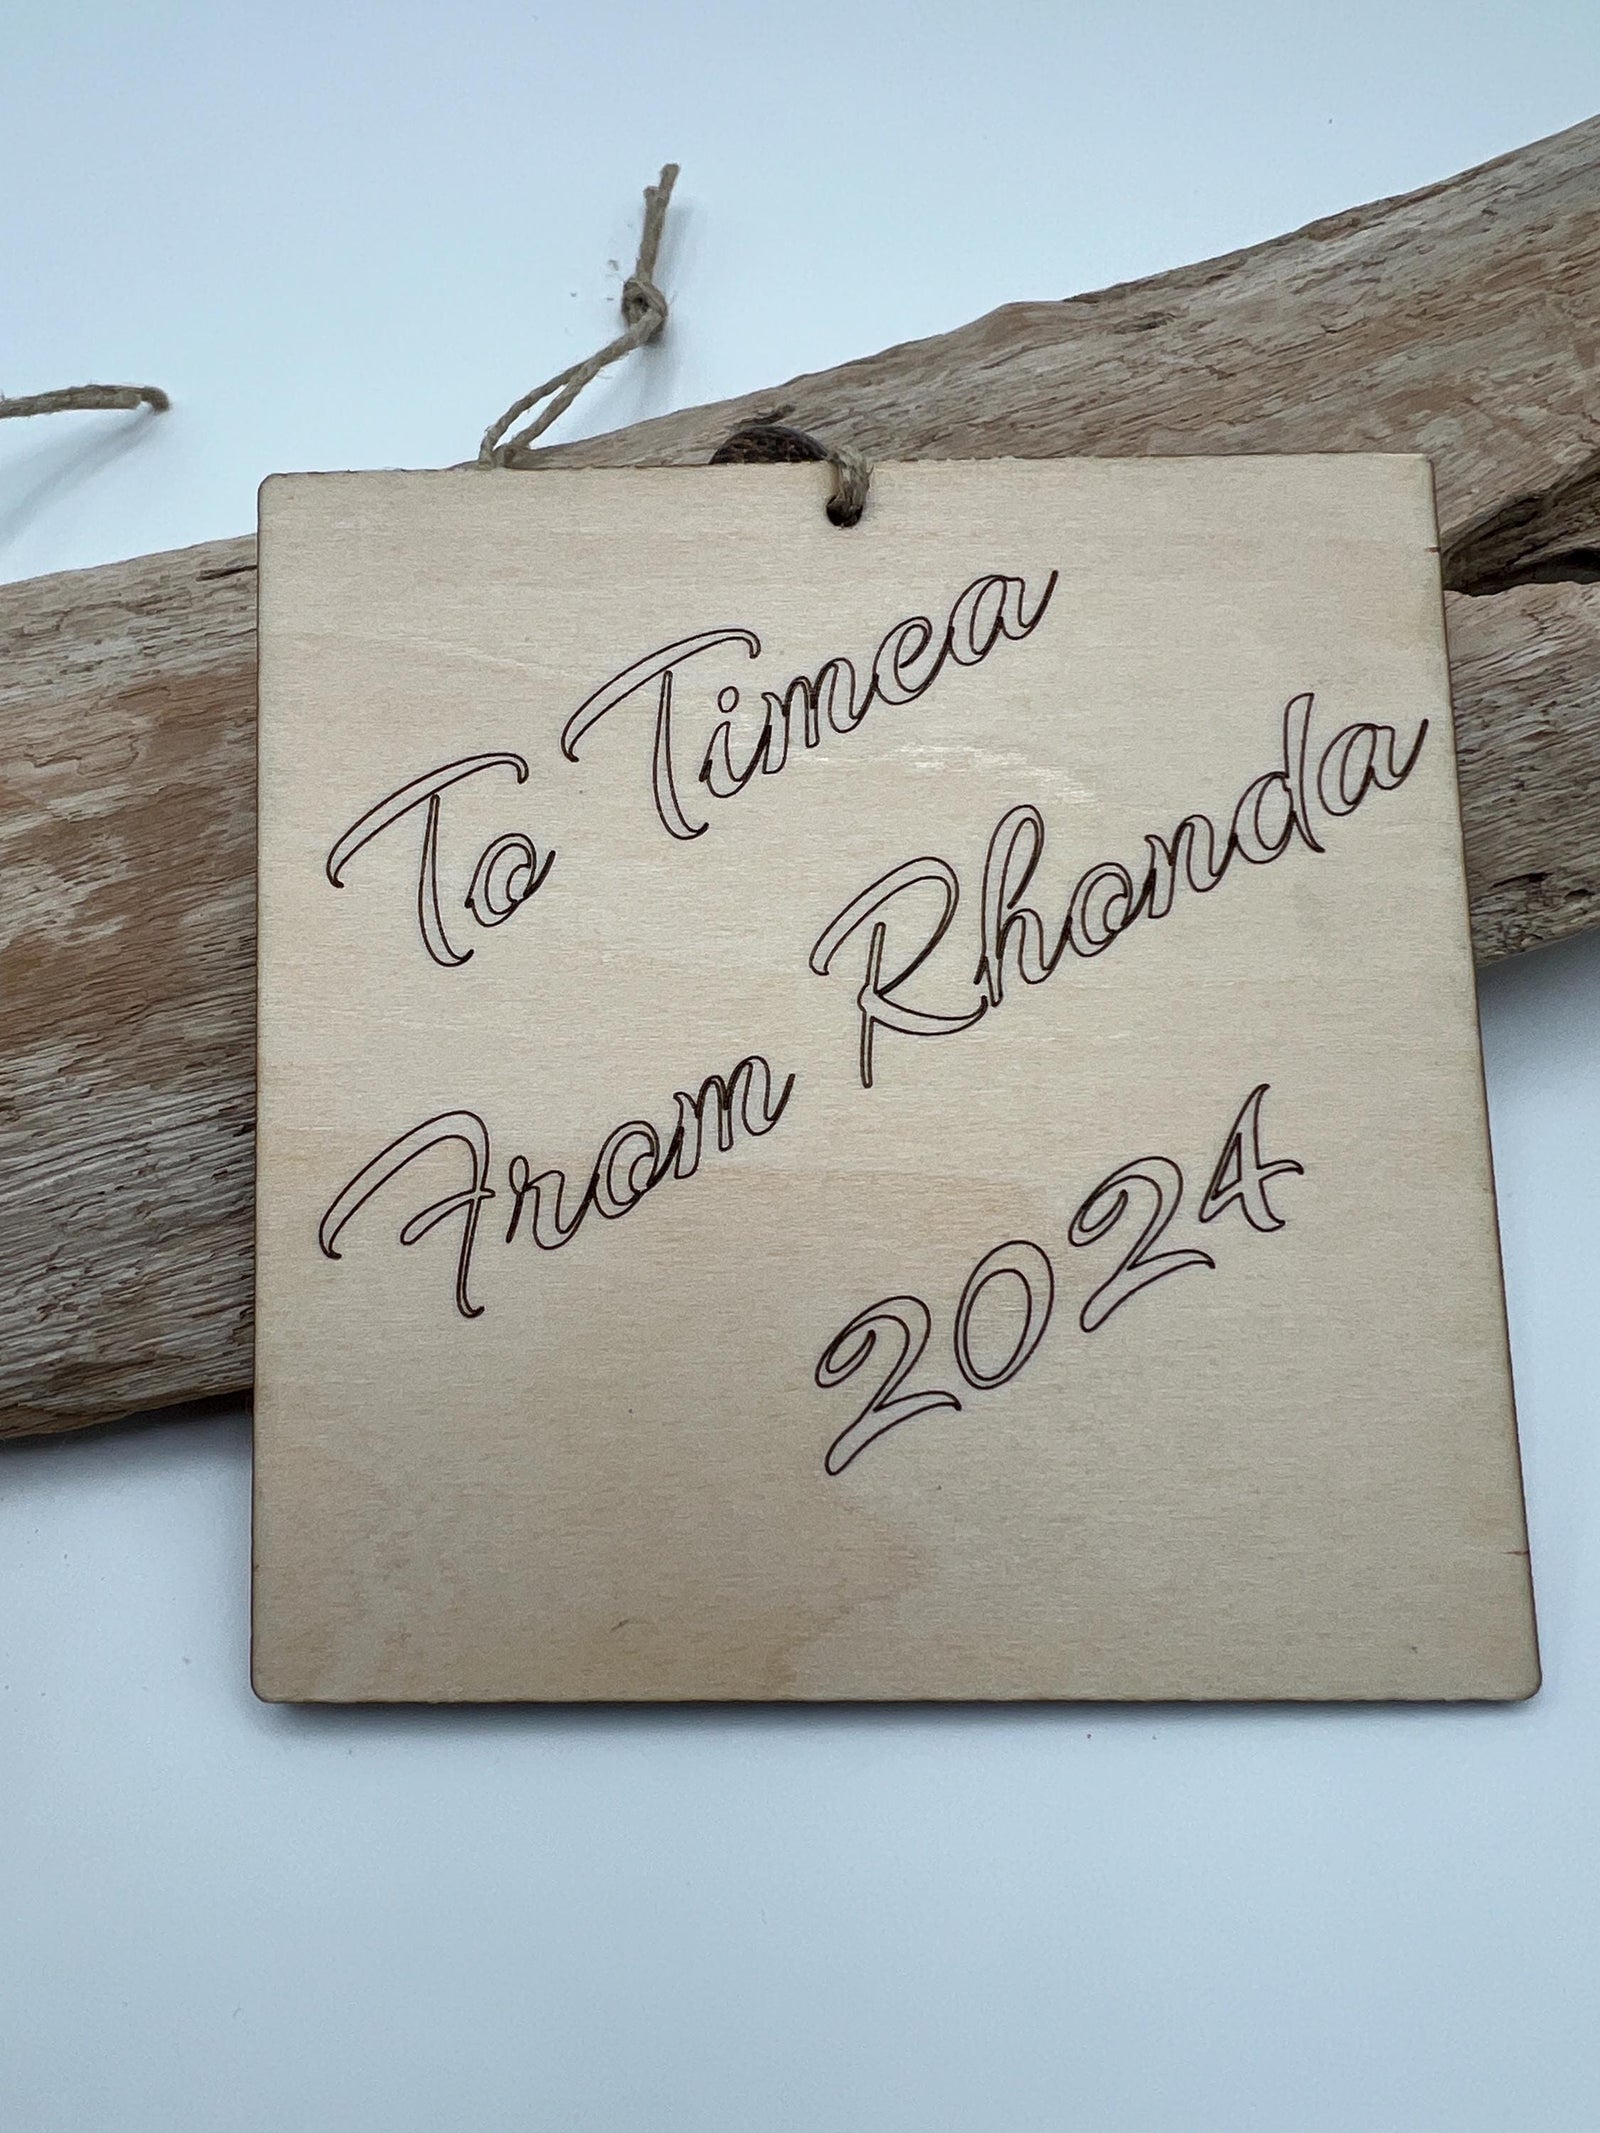 To Timea
From Rhonda
2024